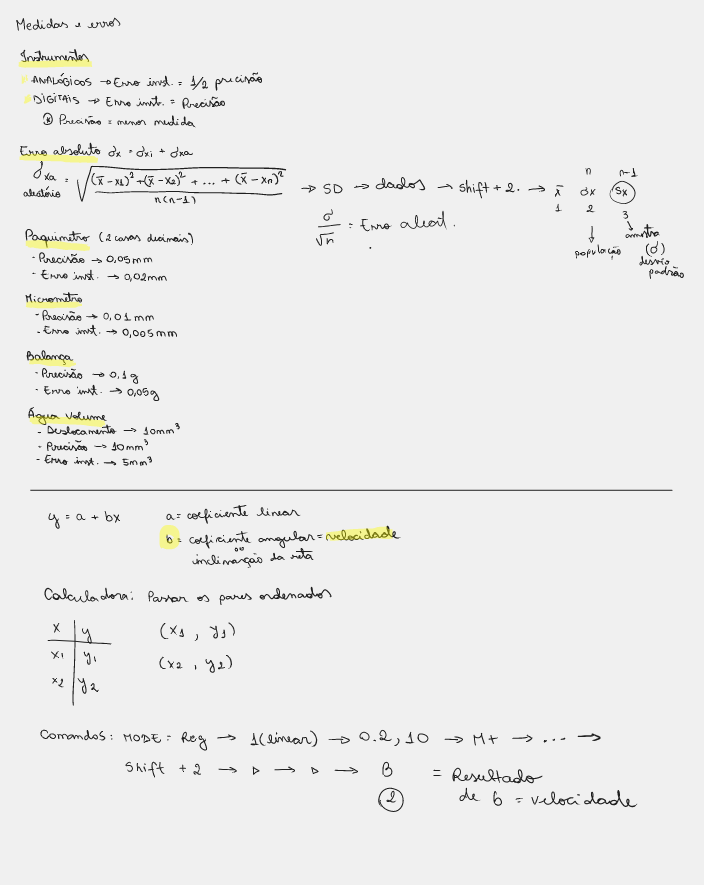 Medidas e erros
Instrumentos
ANALÓGICOS → Erro inst. = 1/2 precisão
DIGITAIS → Erro inst. = Precisão
* Precisão = menor medida
Erro absoluto σx = σxi + σxa
σxa = √((x̄ - x1)² + (x̄ - x2)² + ... + (x̄ - xn)² / n(n-1)) → SD → dados → shift + 2. → x̄ σx Sx
aleatório
n n-1
1 2 3
σ/√n = Erro aleat.
população
amostra
(σ)
desvio
padrão
Paquimetro (2 casas decimais)
- Precisão → 0,05mm
- Erro inst. → 0,02mm
Micrometro
- Precisão → 0,01mm
- Erro inst. → 0,005mm
Balança
- Precisão → 0,1g
- Erro inst. → 0,05g
Água Volume
- Deslocamento → 10mm³
- Precisão → 10mm³
- Erro inst. → 5mm³
y = a + bx a = coeficiente linear
b = coeficiente angular = velocidade
ou
inclinação da reta
Calculadora: Passar os pares ordenados
x | y (x1, y1)
x1 | y1 (x2, y2)
x2 | y2
Comandos: MODE = Reg → 1(linear) → 0.2, 10 → M+ → ... →
Shift + 2 → ▷ → ▷ → B = Resultado
2 de b = velocidade